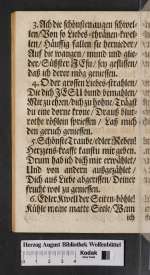 3. Ach die schönsten augen schwel-
len/ Von so Liebes-thränen-kwel-
len/ Häuffig fallen sie hernieder/
Auf die wangen/ mund und glie-
der/ Süßster JEsu/ sey geflissen/
daß ich derer mög geniessen.
4. Oder grossen liebes-strahlen/
Die dich JESU bund bemahlen/
Mir zu ehren/ dich zu hohne/ Trägst
du eine dorne krone/ Draus blut-
rothe rößlein spriessen/ Laß mich
den geruch geniessen.
5. Schönste Traube/ edler Reben/
Hertzens-krafft kanstu mir geben.
Drum hab ich dich mir erwählet/
Und von andern außgezählet/
Dich aus Liebe abgerissen/ Deiner
frucht wol zu geniessen.
6. Edler Kwell der Seiten-höhle/
Kühle meine matte Seele/ Wenn
ich
Herzog August Bibliothek Wolfenbüttel
Kodak